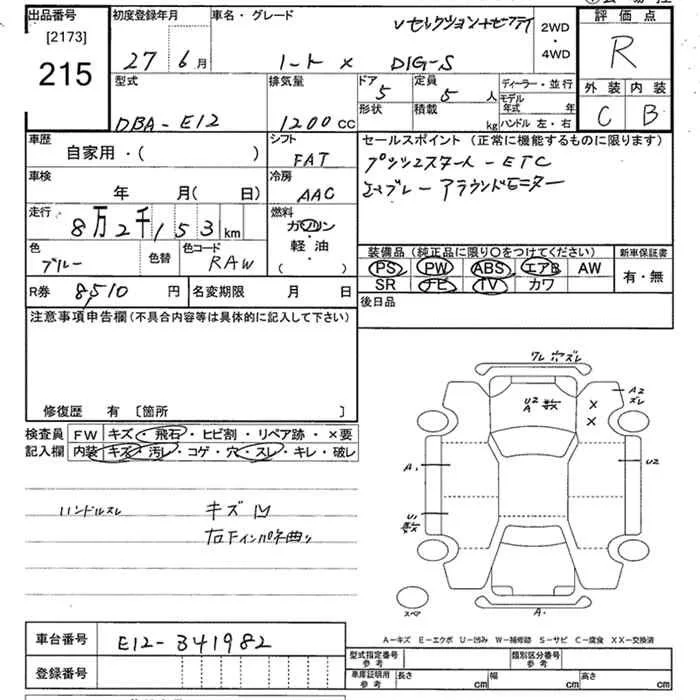 出品番号
[2173]
215
初度登録年月
27 6月
車名・グレード
Vセレクション+セーフティ
ノート X DIG-S
2WD
・
4WD
評価点
R
外装 内装
C B
型式
DBA-E12
排気量
1200CC
ドア
5
定員
5人
形状
積載
kg
ディーラー・並行
モデル年式 年
ハンドル 左・右
車歴
自家用・( )
シフト
FAT
車検
年 月( 日)
冷房
AAC
走行
8万2千153km
燃料
ガソリン
・
軽油
( )
色
ブルー
色替
色コード
RAW
R券 8,510円
名変期限 月 日
セールスポイント(正常に機能するものに限ります)
プッシュスタート-ETC
エマブレー アラウンドモニター
装備品(純正品に限り○をつけてください)
PS PW ABS エアB AW
SR ナビ TV カワ
新車保証書
有・無
後日品
注意事項申告欄(不具合内容等は具体的に記入して下さい)
修復歴 有 〔箇所 〕
検査員
記入欄
FW キズ・飛石・ヒビ割・リペア跡・×要
内装 キズ・汚レ・コゲ・穴・スレ・キレ・破レ
ハンドルスレ
キズ凹
右Fインパネ曲り
ワレ 穴 ズレ
U2
A
X
X
A2
ズレ
A1
U2
U1
A1
スペア
A-キズ E-エクボ U-凹み W-補修跡 S-サビ C-腐食 XX-交換済
車台番号 E12-341982
登録番号
型式指定番号
参考
類別区分番号
参考
車庫証明用
参考
長さ cm
幅 cm
高さ cm